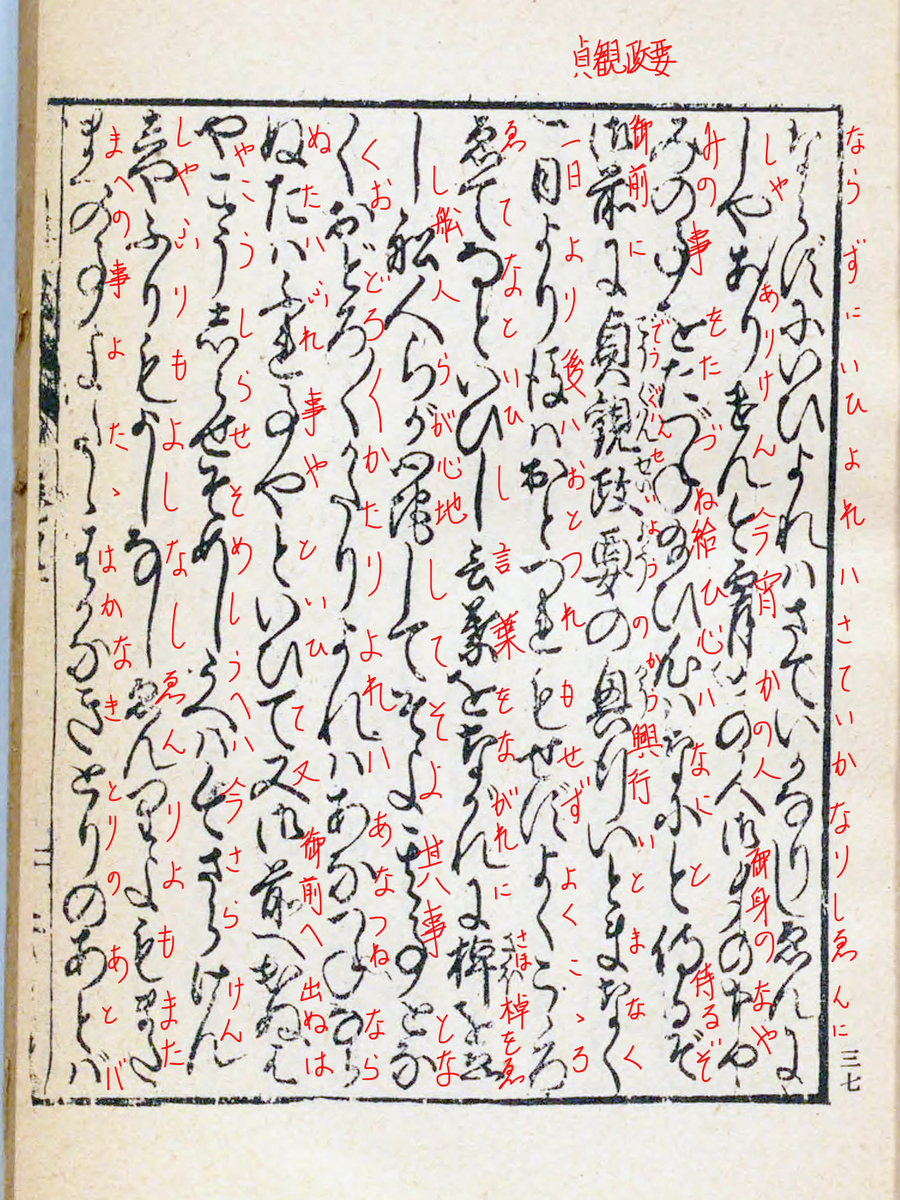 貞観政要
ならずにいひよれハさていかなりしゑんに
しやありけん今宵かの人御身のなや
みの事をたづね給ひ心ハなにと侍るぞ
御前に貞觀政要の興行いとまなく
一日より後ハおとつれもせずよくこゝろ
ゑてなといひし言葉をながれに棹をゑ
し舩人らが心地してそよ其八事とな
くおどろ〳〵かたりよれハあなつねなら
ぬたハぶれ事やといひて又御前へ出ぬは
やこうしらせそめしうへハ今さらけん
しやぶりもよしなしゑんりよもまた
まへの事よたゝはかなきとりのあとバ
三七